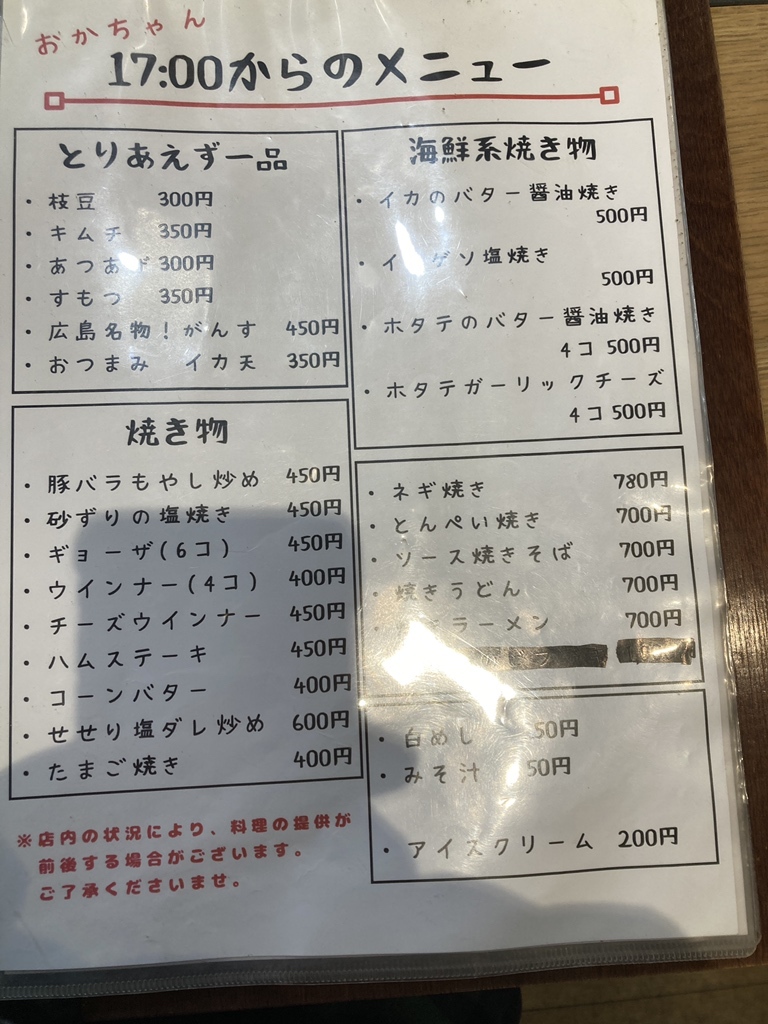 おかちゃん
17:00からのメニュー
とりあえず一品
・枝豆 300円
・キムチ 350円
・あつあげ 300円
・すもつ 350円
・広島名物！がんす 450円
・おつまみ イカ天 350円
焼き物
・豚バラもやし炒め 450円
・砂ずりの塩焼き 450円
・ギョーザ(6コ) 450円
・ウインナー(4コ) 400円
・チーズウインナー 450円
・ハムステーキ 450円
・コーンバター 400円
・せせり塩ダレ炒め 600円
・たまご焼き 400円
※店内の状況により、料理の提供が
前後する場合がございます。
ご了承くださいませ。
海鮮系焼き物
・イカのバター醤油焼き
500円
・イカゲソ塩焼き
500円
・ホタテのバター醤油焼き
4コ 500円
・ホタテガーリックチーズ
4コ 500円
・ネギ焼き 780円
・とんぺい焼き 700円
・ソース焼きそば 700円
・焼きうどん 700円
ラーメン 700円
・白めし 50円
・みそ汁 50円
・アイスクリーム 200円